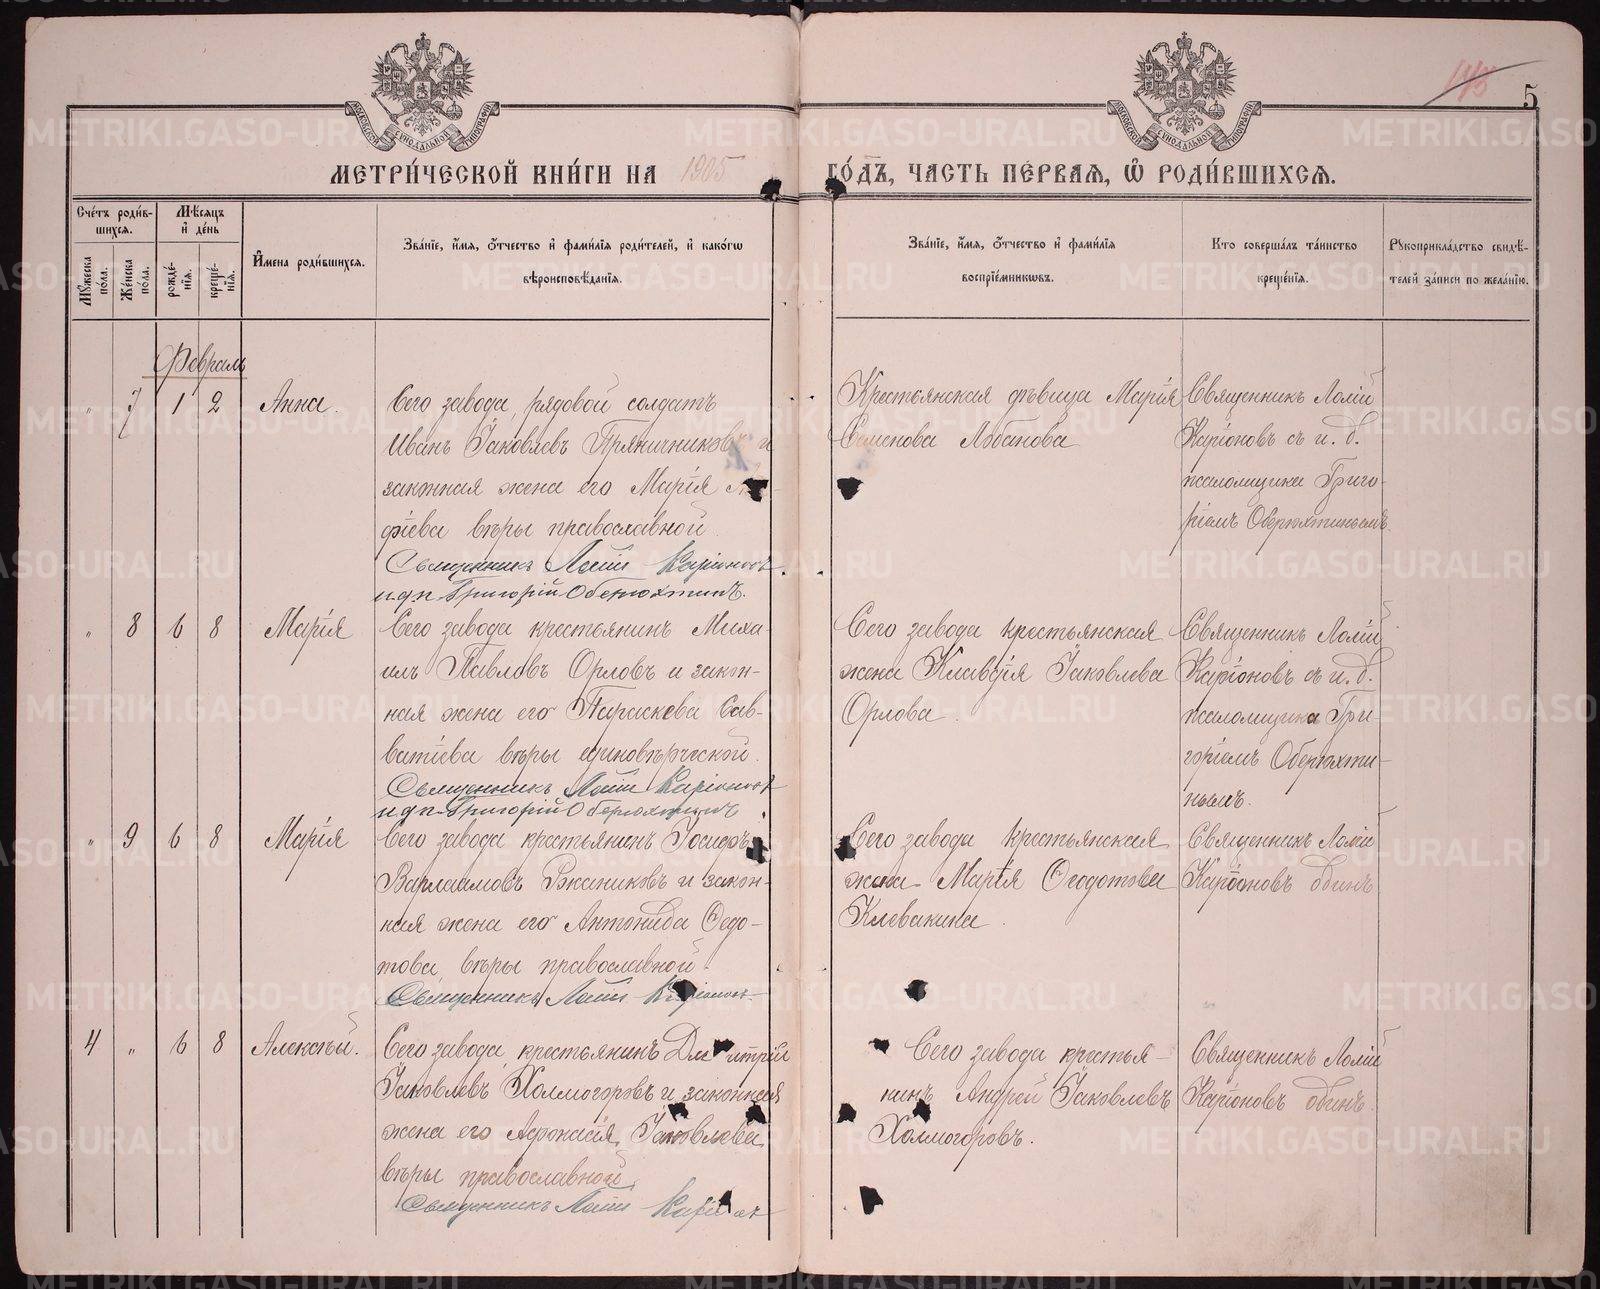 145
5
МЕТРИ́ЧЕСКОЙ КНИ́ГИ НА 1905 ГО́ДЪ, ЧАСТЬ ПЕ́РВАѦ, Ѽ РОДИ́ВШИХСѦ.
Сче́тъ роди́в-
шихсѧ.
Мꙋ́жеска по́ла.
Же́нска по́ла.
Мѣ́сѧцъ и҆ де́нь
рожде́-
нїѧ.
креще́-
нїѧ.
И҆мена̀ роди́вшихсѧ.
Зва́нїе, и҆́мѧ, ѻ҆́тчество и҆ фами́лїѧ роди́телей, и҆ како́гѡ
вѣроисповѣ́данїѧ.
Зва́нїе, и҆́мѧ, ѻ҆́тчество и҆ фами́лїѧ
воспрїе́мникѡвъ.
Кто̀ соверша́лъ та́инство
креще́нїѧ.
Рꙋкоприкла́дство свидѣ́-
телей за́писи по жела́нїю.
Февраль
" 7 1 2 Анна.
Сего завода, рядовой солдатъ
Иванъ Іаковлевъ Пряничниковъ и
законная жена его Марія
фіева вѣры православной.
Священникъ Лоллій Каріоновъ
и.д.п. Григорій Оберюхтинъ.
Крестьянская дѣвица Марія
Семенова Лобанова
Священникъ Лоллій
Каріоновъ съ и. д.
псаломщика Григо-
ріемъ Оберюхтинымъ
" 8 6 8 Марія
Сего завода крестьянинъ Миха-
илъ Павловъ Орловъ и закон-
ная жена его Параскева Сав-
ватіева вѣры единовѣрческой.
Священникъ Лоллій Каріоновъ
и.д.п. Григорій Оберюхтинъ
Сего завода крестьянская
жена Клавдія Іаковлева
Орлова.
Священникъ Лоллій
Каріоновъ съ и. д.
псаломщика Гри-
горіемъ Оберюхти-
нымъ.
" 9 6 8 Марія
Сего завода крестьянинъ Іосифъ
Варлаамовъ Ржаниковъ и закон-
ная жена его Антонида Ѳедо-
това, вѣры православной.
Священникъ Лоллій Каріоновъ
Сего завода крестьянская
жена Марія Ѳеодотова
Клевакина.
Священникъ Лоллій
Каріоновъ одинъ
4 " 6 8 Алексѣй.
Сего завода, крестьянинъ Димитрій
Іаковлевъ Холмогоровъ и законная
жена его Аѳонасія Іаковлева,
вѣры православной.
Священникъ Лоллій Каріоновъ
Сего завода крестья-
нинъ Андрей Іаковлевъ
Холмогоровъ.
Священникъ Лоллій
Каріоновъ одинъ.
METRIKI.GASO-URAL.RU